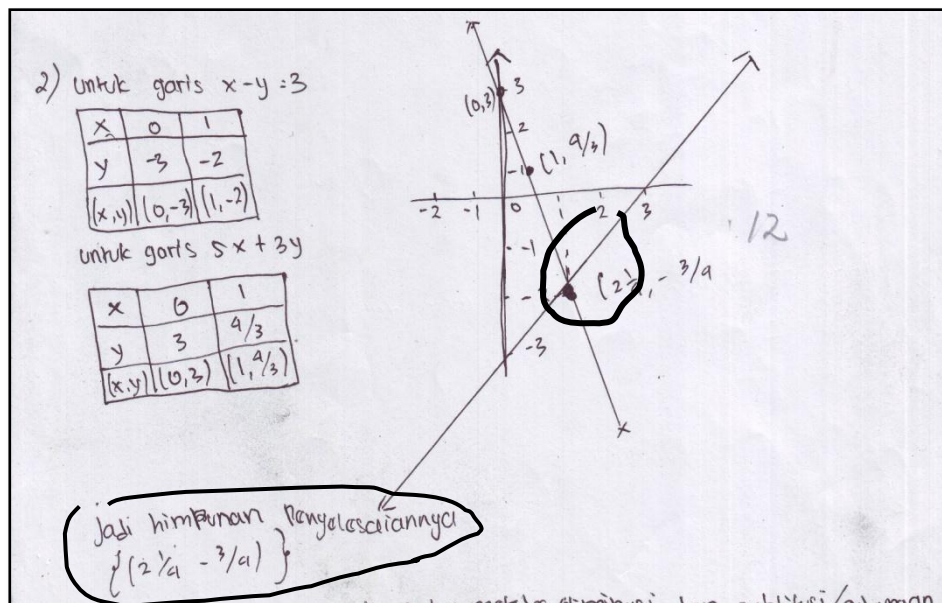 2) untuk garis x - y = 3
x 0 1
y -3 -2
(x,y) (0,-3) (1,-2)
untuk garis 5x + 3y
x 0 1
y 3 4/3
(x,y) (0,3) (1,4/3)
3
(0,3)
2
-1 (1, 4/3)
-2 -1 0 1 2 3
-1
-3
12
Jadi himpunan Penyelesaiannya
{(2 1/4 - 3/4)}